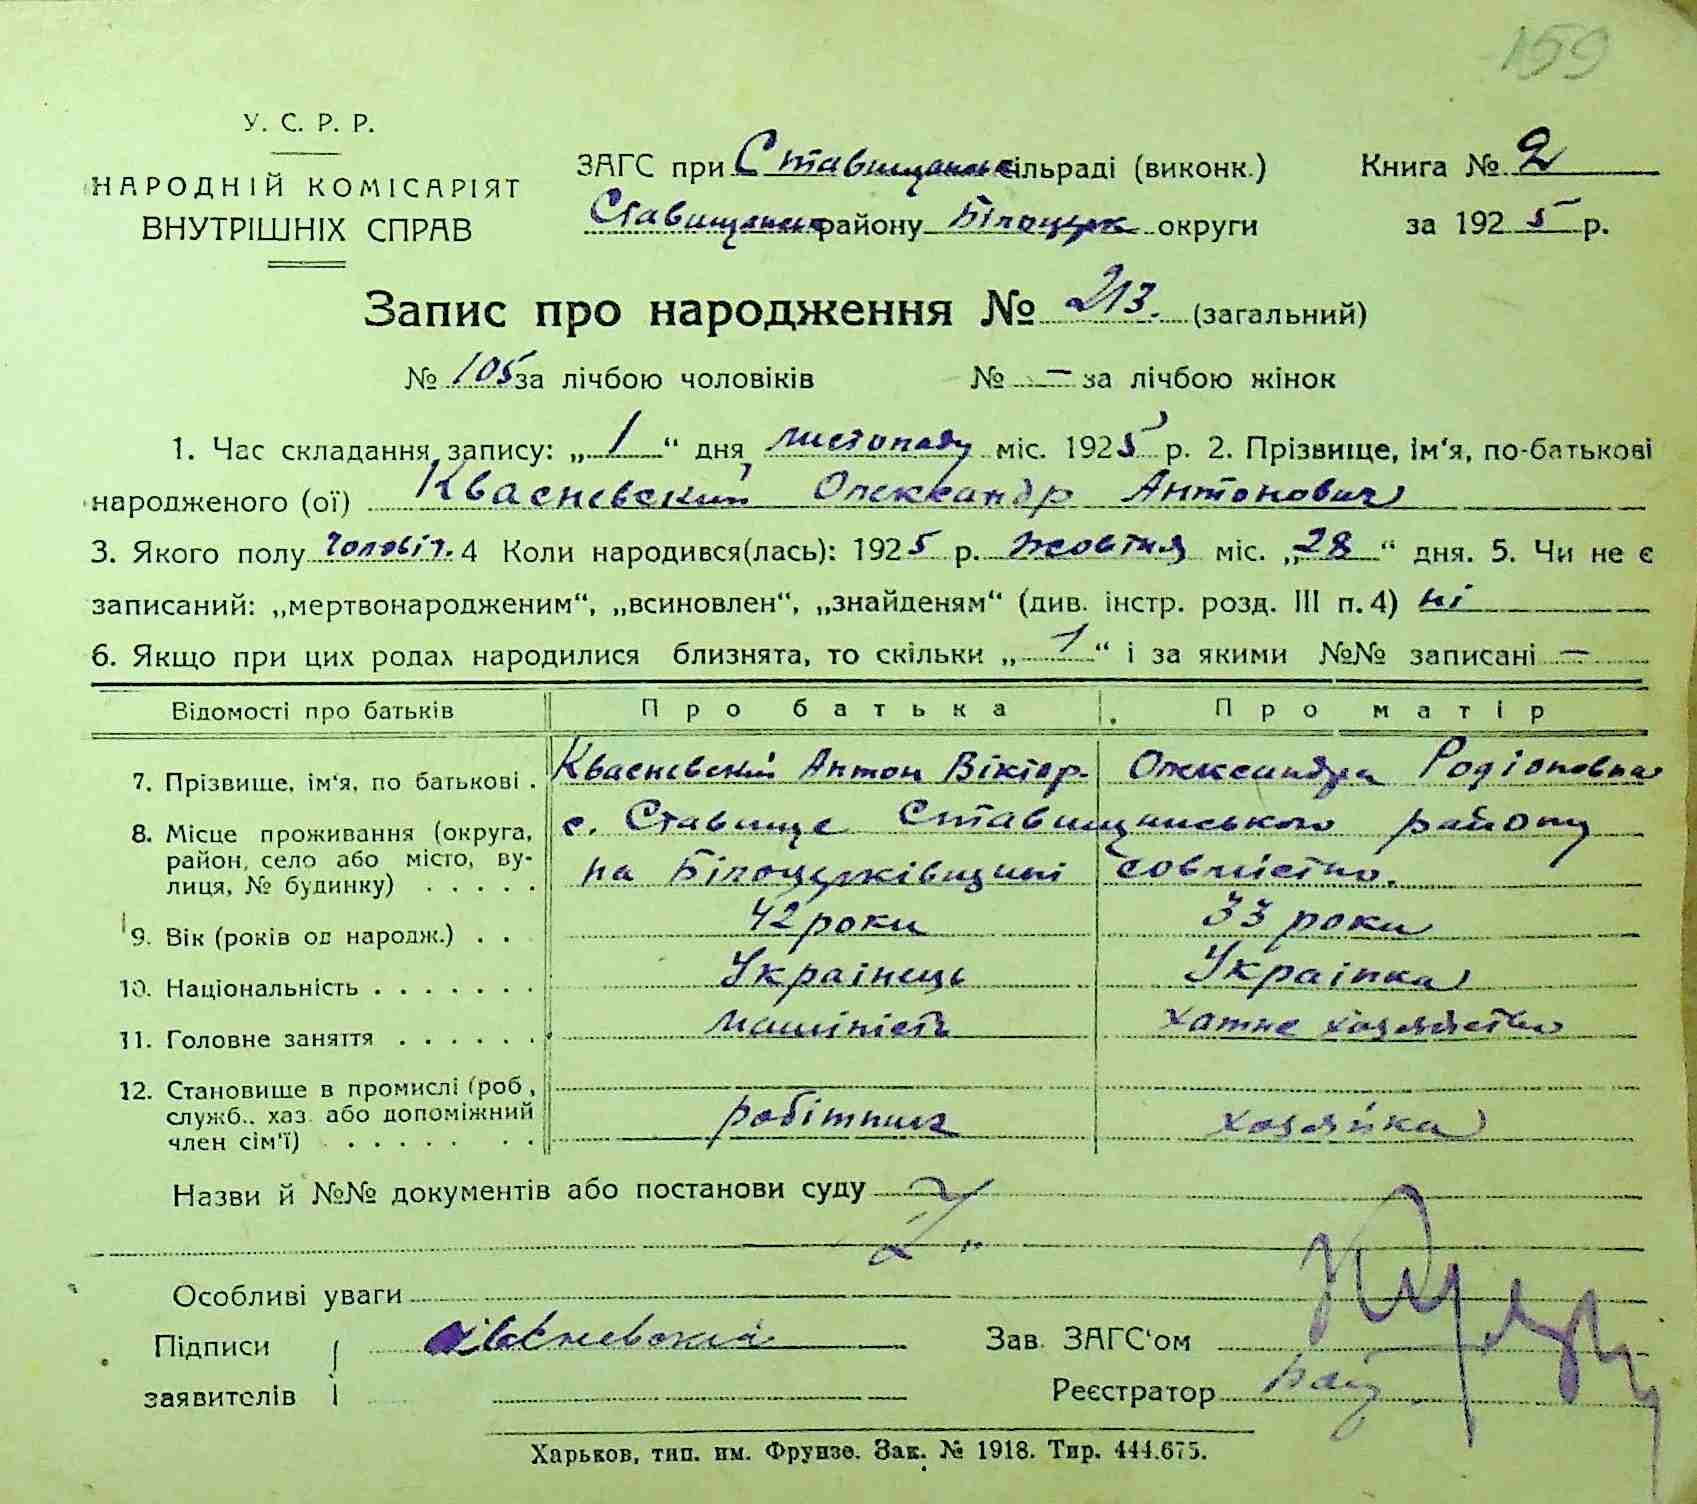 159
У. С. Р. Р.
НАРОДНІЙ КОМІСАРІЯТ
ВНУТРІШНІХ СПРАВ
ЗАГС при Ставищанськ сільраді (виконк.)
Ставищанськ району Білоцерк округи
Книга № 2
за 1925 р.
Запис про народження № 213. (загальний)
№ 105 за лічбою чоловіків № — за лічбою жінок
1. Час складання запису: „1“ дня листопаду міс. 1925 р. 2. Прізвище, ім'я, по-батькові
народженого (ої) Квасневський Олександр Антонович
3. Якого полу чоловіч. 4 Коли народився(лась): 1925 р. жовтня міс. „28“ дня. 5. Чи не є
записаний: „мертвонародженим“, „всиновлен“, „знайденям“ (див. інстр. розд. III п. 4) ні
6. Якщо при цих родах народилися близнята, то скільки „1“ і за якими №№ записані —
Відомості про батьків Про батька Про матір
7. Прізвище, ім'я, по батькові . Квасневский Антон Віктор. Олександра Родіоновна
8. Місце проживання (округа, район, село або місто, вулиця, № будинку) . . . . . с. Ставище Ставищанського району
на Білоцерківщині совмістно.
9. Вік (років од народж.) . . 42 роки 33 роки
10. Національність . . . . . . . Українець Українка
11. Головне заняття . . . . . . машиніст хатнє хозяйство
12. Становище в промислі (роб, служб., хаз. або допоміжний член сім'ї) . . . . . . . робітник хозяйка
Назви й №№ документів або постанови суду
Особливі уваги
Підписи
заявителів
Квасневский
Зав. ЗАГС'ом
Реєстратор
Харьков, тип. им. Фрунзе. Зак. № 1918. Тир. 444.675.